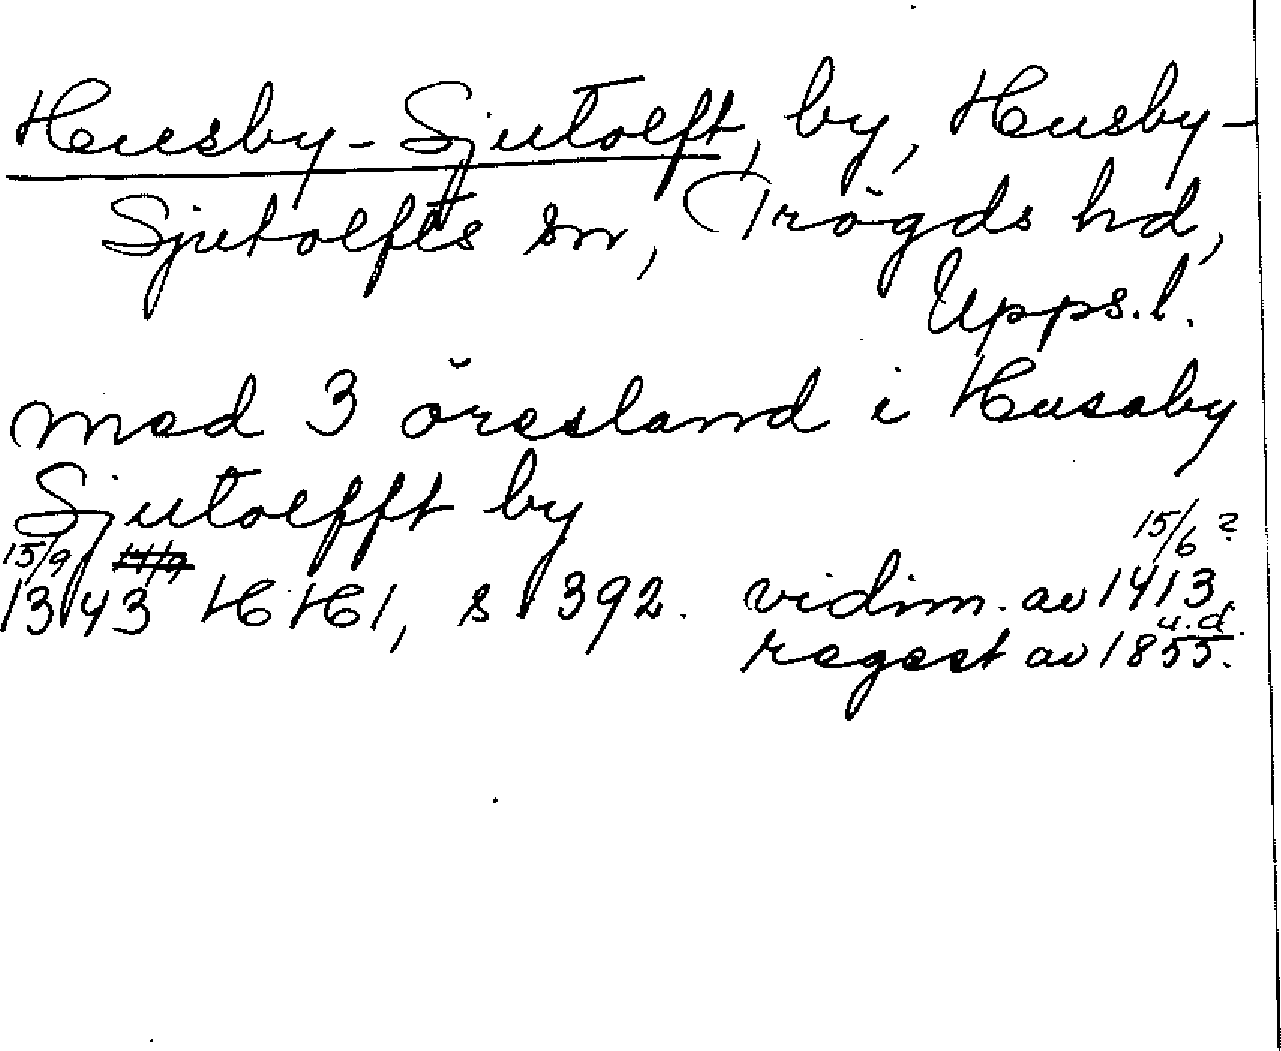 Husby-Sjutolft, by, Husby-
Sjutolfts sn, Trögds hd,
Upps.l.
med 3 öresland i Husaby
Sjutolfft by
15/9 11/9 15/6?
1343 HH1, s 392. vidim. av 1413,
u.d.
regest av 1855.